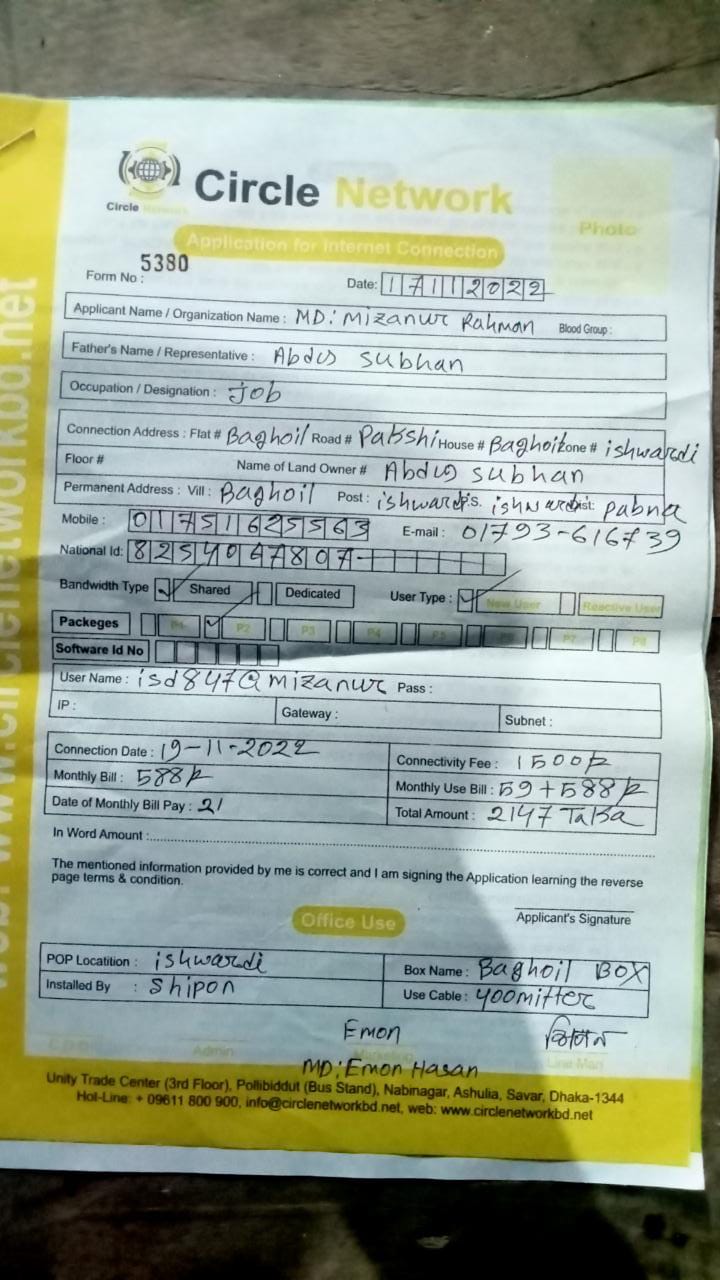 Circle Network
Circle Network
Photo
Application for Internet Connection
Form No : 5380
Date: 17112022
Applicant Name / Organization Name : MD: Mizanur Rahman Blood Group :
Father's Name / Representative : Abdus Subhan
Occupation / Designation : Job
Connection Address : Flat # Baghoil Road # Pakshi House # Baghoil Zone # ishwardi
Floor # Name of Land Owner # Abdus Subhan
Permanent Address : Vill : Baghoil Post : ishwardi P.S. ishwardi Dist: Pabna
Mobile : 01751625563 E-mail : 01793-616739
National Id: 8254047807-
Bandwidth Type Shared Dedicated User Type : New User Reactive User
Packeges P1 P2 P3 P4 P5 P6 P7 P8
Software Id No
User Name : isd847@mizanur Pass :
IP : Gateway : Subnet :
Connection Date : 19-11-2022 Connectivity Fee : 1500/=
Monthly Bill : 588/= Monthly Use Bill : 59+588/=
Date of Monthly Bill Pay : 2/ Total Amount : 2147 Taka
In Word Amount :
The mentioned information provided by me is correct and I am signing the Application learning the reverse
page terms & condition.
Applicant's Signature
Office Use
POP Locatition : ishwardi Box Name : Baghoil BOX
Installed By : Shipon Use Cable : 400mitter
Emon
MD: Emon Hasan
C.E.O Admin Marketing Line Man
Unity Trade Center (3rd Floor), Pollibiddut (Bus Stand), Nabinagar, Ashulia, Savar, Dhaka-1344
Hot-Line: + 09611 800 900, info@circlenetworkbd.net, web: www.circlenetworkbd.net
web: www.circlenetworkbd.net